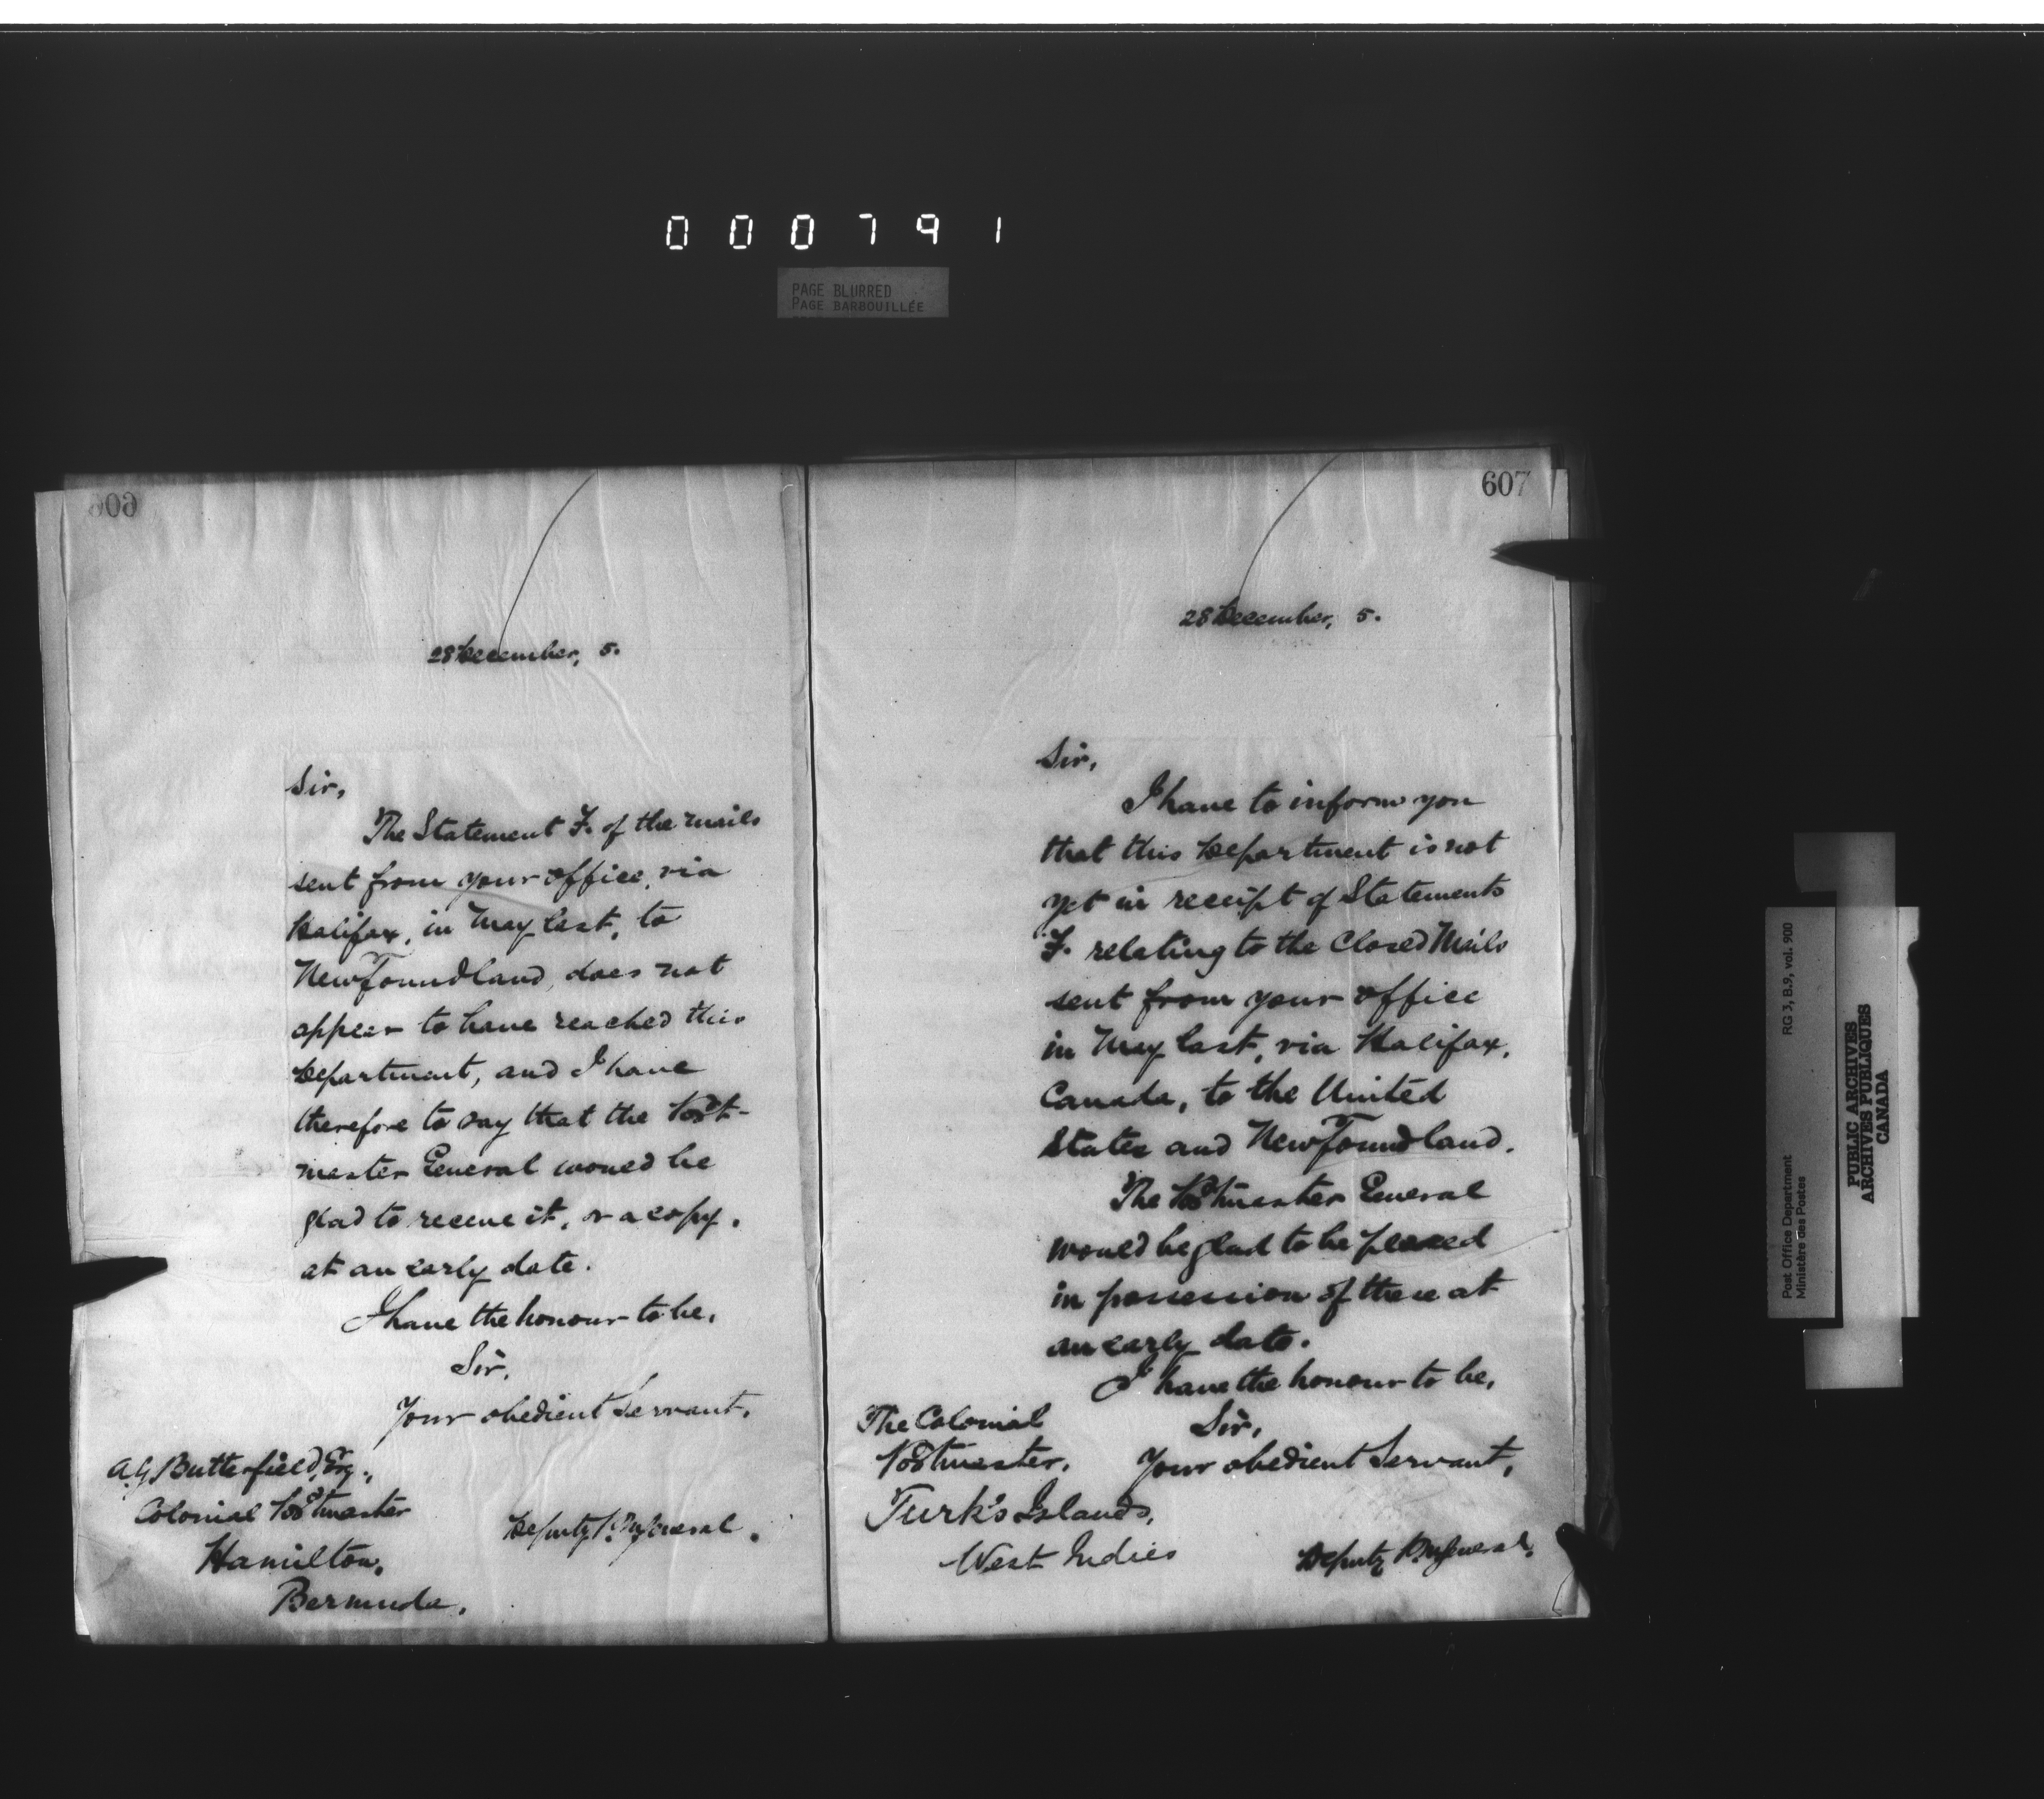 000791
PAGE BLURRED
PAGE BARBOUILLÉE
606
28 December, 5.
Sir,
The Statement F. of the mails
sent from your office, via
Halifax, in May last, to
Newfoundland, does not
appear to have reached this
Department, and I have
therefore to say that the Post-
master General would be
glad to receive it, or a copy,
at an early date.
I have the honour to be,
Sir,
Your obedient Servant,
A.G. Butterfield, Esq.,
Colonial Postmaster
Deputy P.M. General.
Hamilton,
Bermuda.
607
28 December, 5.
Sir,
I have to inform you
that this Department is not
yet in receipt of Statements
F. relating to the Closed Mails
sent from your office
in May last, via Halifax,
Canada, to the United
States and Newfoundland.
The Postmaster General
would be glad to be placed
in possession of these at
an early date.
I have the honour to be,
Sir,
Your obedient Servant,
The Colonial
Postmaster,
Turk's Islands,
West Indies
Deputy P.M. General.
Post Office Department
Ministère des Postes
RG 3, B.9, vol. 900
PUBLIC ARCHIVES
ARCHIVES PUBLIQUES
CANADA